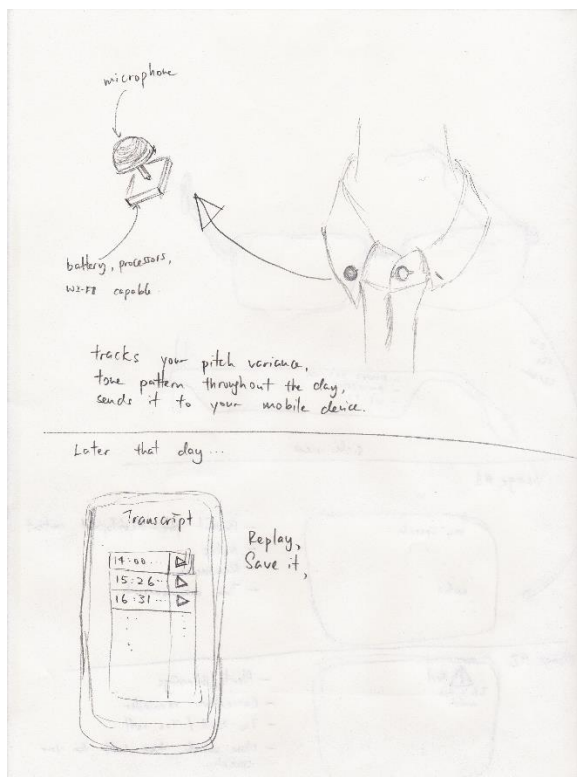 microphone
battery, processors,
Wi-Fi capable.
tracks your pitch variance,
tone pattern throughout the day,
sends it to your mobile device.
Later that day...
Transcript
14:00..
15:26..
16:31..
Replay,
Save it,